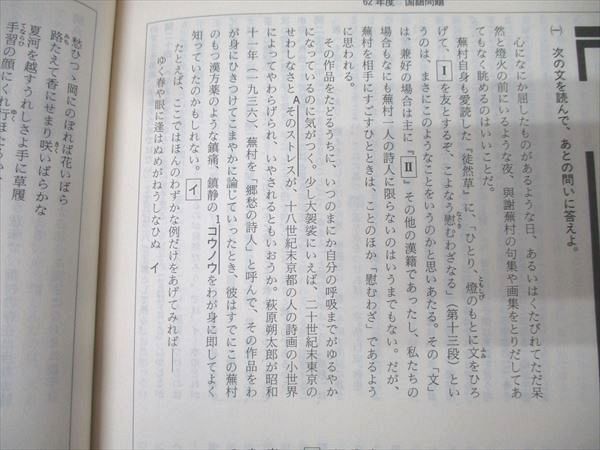 62年度 国語問題
㈠ 次の文を読んで、あとの問いに答えよ。
心になにか屈したものがあるような日、あるいはくたびれてただ呆
然と燈火の前にいるような夜、與謝蕪村の句集や画集をとりだしてあ
てもなく眺めるのはいいことだ。
蕪村自身も愛読した『徒然草』に、「ひとり、燈のもとに文をひろ
げて、Ⅰを友とするぞ、こよなう慰むわざなる」(第十三段)とい
うのは、まさにこのようなことをいうのかと思いあたる。その「文」
は、兼好の場合は主に『Ⅱ』その他の漢籍であったし、私たちの
場合もなにも蕪村一人の詩人に限らないのはいうまでもない。だが、
蕪村を相手にすごすひとときは、ことのほか「慰むわざ」であるよう
に思われる。
その作品をたどるうちに、いつのまにか自分の呼吸までがゆるやか
になっているのに気がつく。少し大袈裟にいえば、二十世紀末東京の
せわしなさとAそのストレスが、十八世紀末京都の人の詩画の小世界
によってやわらげられ、いやされるともいおうか。萩原朔太郎が昭和
十一年(一九三六)蕪村を「郷愁の詩人」と呼んで、その作品をわ
が身にひきつけてこまやかに論じていったとき、彼はすでにこの蕪村
のもつ漢方薬のような鎮痛、鎮静の1コウノウをわが身に即してよく
知っていたのかもしれない。イ
たとえば、ここではほんのわずかな例だけをあげてみれば――
ゆく春や眼に逢はぬめがねうしなひぬ イ
愁ひつゝ岡にのぼれば花いばら
路たえて香にせまり咲いばらかな
夏河を越すうれしさよ手に草履
手習の顔にくれ行